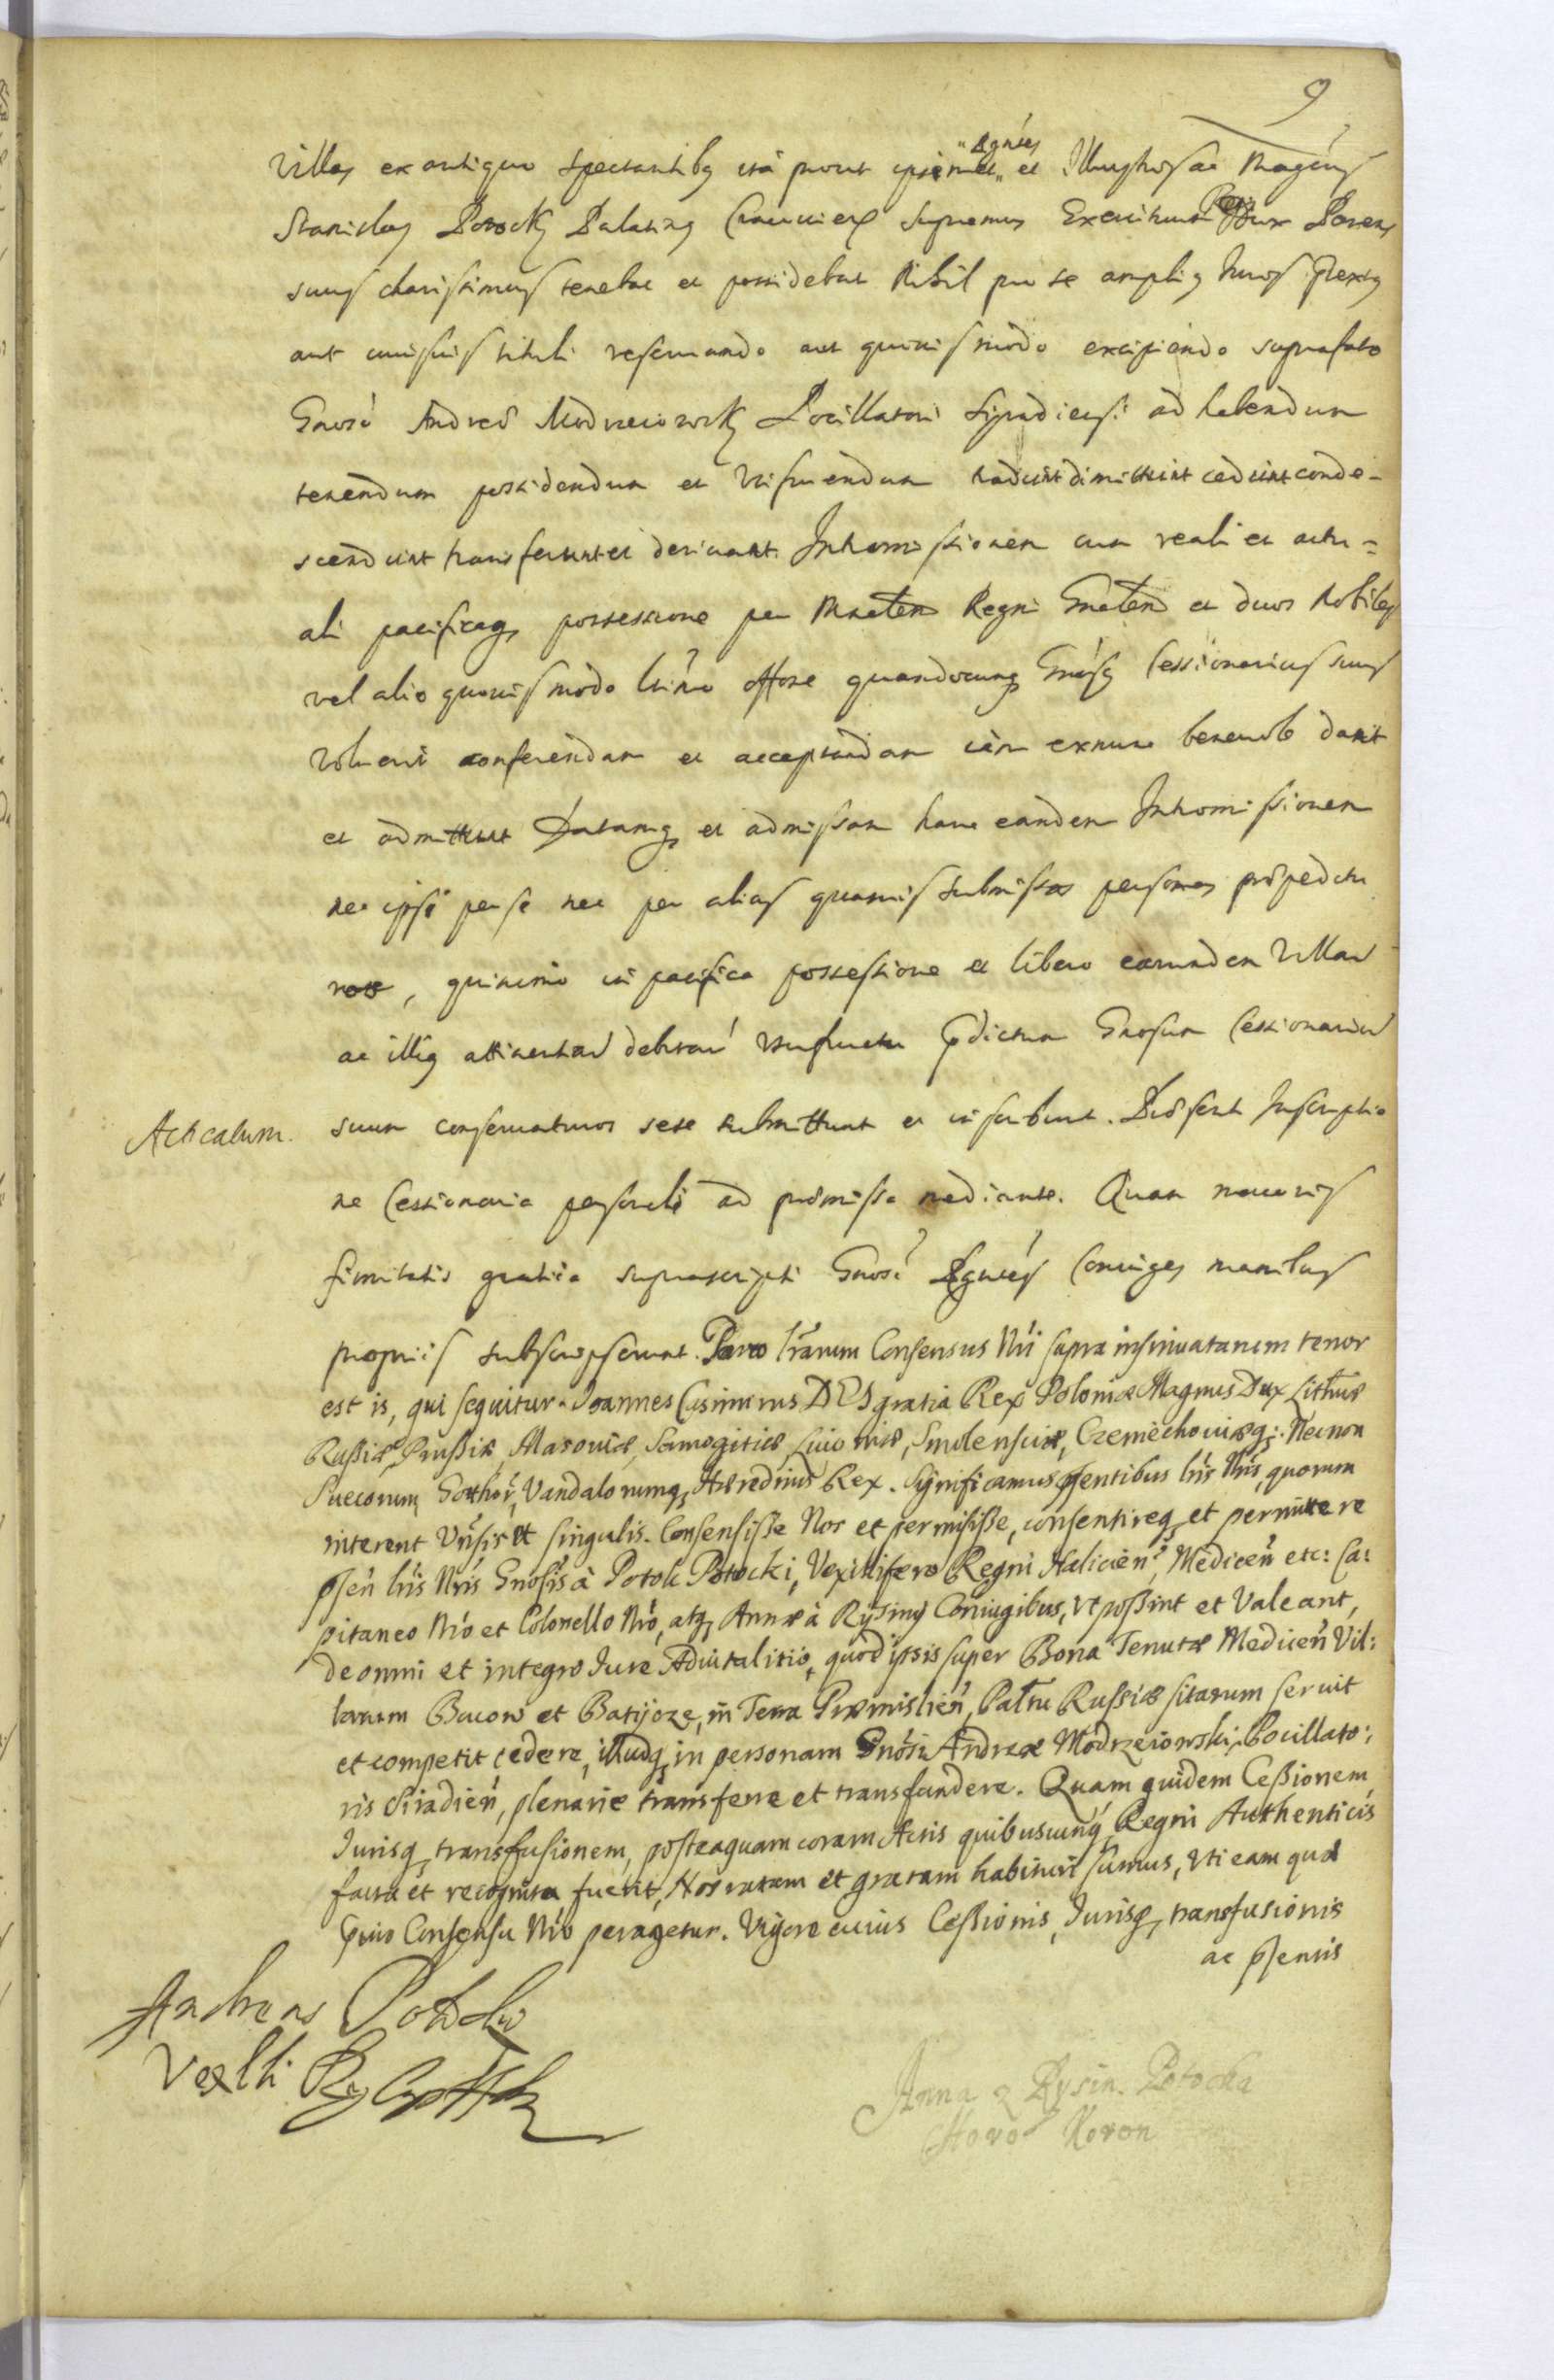 9
Villas ex antiquo spectantibq ita prout ipsimet "Rgntes" et Illustris ac Magcus
Stanislaus Potocki Palatinq Cracovien Supremus Exercituum Regni Dux Parens
suus charissimus tenebat et possidebat Nihil pro se ampliq Juris
aut cuiusvis tituli reservando aut quovis modo excipiendo suprafato
Gnoso Andreæ Modrzeiowski Pocillatori Siradiensi ad habendum
tenendum possidendum et utifruendum tradunt dimittunt cedunt conde-
scendunt transferunt et derivant. Intromissionem cum reali et actu=
ali pacificaq possessione per Mnrtem Regni Gnalem et duos Nobiles
vel alio quovis modo ltimo offore quandocunq Gnosq Cessionarius suus
voluerit conferendam et acceptandam iam ex nunc benevole dant
et admittunt Datamq et admissam hanc eandem Intromissionem
nec ipsi per se nec per alias quasvis submissas personas impeditu
ros, quinimo in pacifica possessione et libero earundem Villar
ac illiq attinentiar debitar usufructu pdictum Gnosum Cessionarium
Acticatum. suum conservaturos sese submittunt et inscribunt. Pdsenti Inscriptio
ne Cessionaria personali ad præmissa mediante. Quam maioris
firmitatis gratia suprascripti Gnosi Rgntes Coniuges manibus
propriis subscripserunt. Porro lrarum Consensus Nri supra insinuatarum tenor
est is, qui sequitur. Joannes Casimirus DEI gratia Rex Poloniæ Magnus Dux Lithuæ
Russiæ Prussiæ, Masoviæ, Samogitiæ, Livoniæ, Smolensciæ, Czerniechoviæq; Necnon
Suecorum, Gothor, Vandalorumq, Hæredrius Rex. Significamus psentibus lris Nris, quorum
interent Vnsis et singulis. Consensisse Nos et permisisse, consentireq, et permittere
psen lris Nris Gnosis à Potok Potocki, Vexillifero Regni Halicien, Medicen etc: Ca:
pitaneo Nro et Colonello Nro, atq Annæ à Rysiny Coniugibus, Vt possint et Valeant,
de omni et integro Iure Advitalitio, quod ipsis super Bona Tenutæ Medicen Vil:
larum Bucow et Batijcze, in Terra Præmislien, Paltu Russiæ sitarum servit
et competit cedere, illudq in personam Gnosi Andreæ Modrzeiowski, Pocillato:
ris Siradien, plenarie transferre et transfundere. Quam quidem Cessionem
Iurisq transfusionem, posteaquam coram Actis quibuscunq Regni Authenticis
facta et recognita fuerit, Nos ratam et gratam habituri sumus, Vti eam quæ
prio Consensu Nro peragetur. Vigore cuius Cessionis, Iurisq, transfusionis
ac psentis
Andreas Potocki
Vexlli Rg
Anna z Rysin. Potocka
Choro Koron